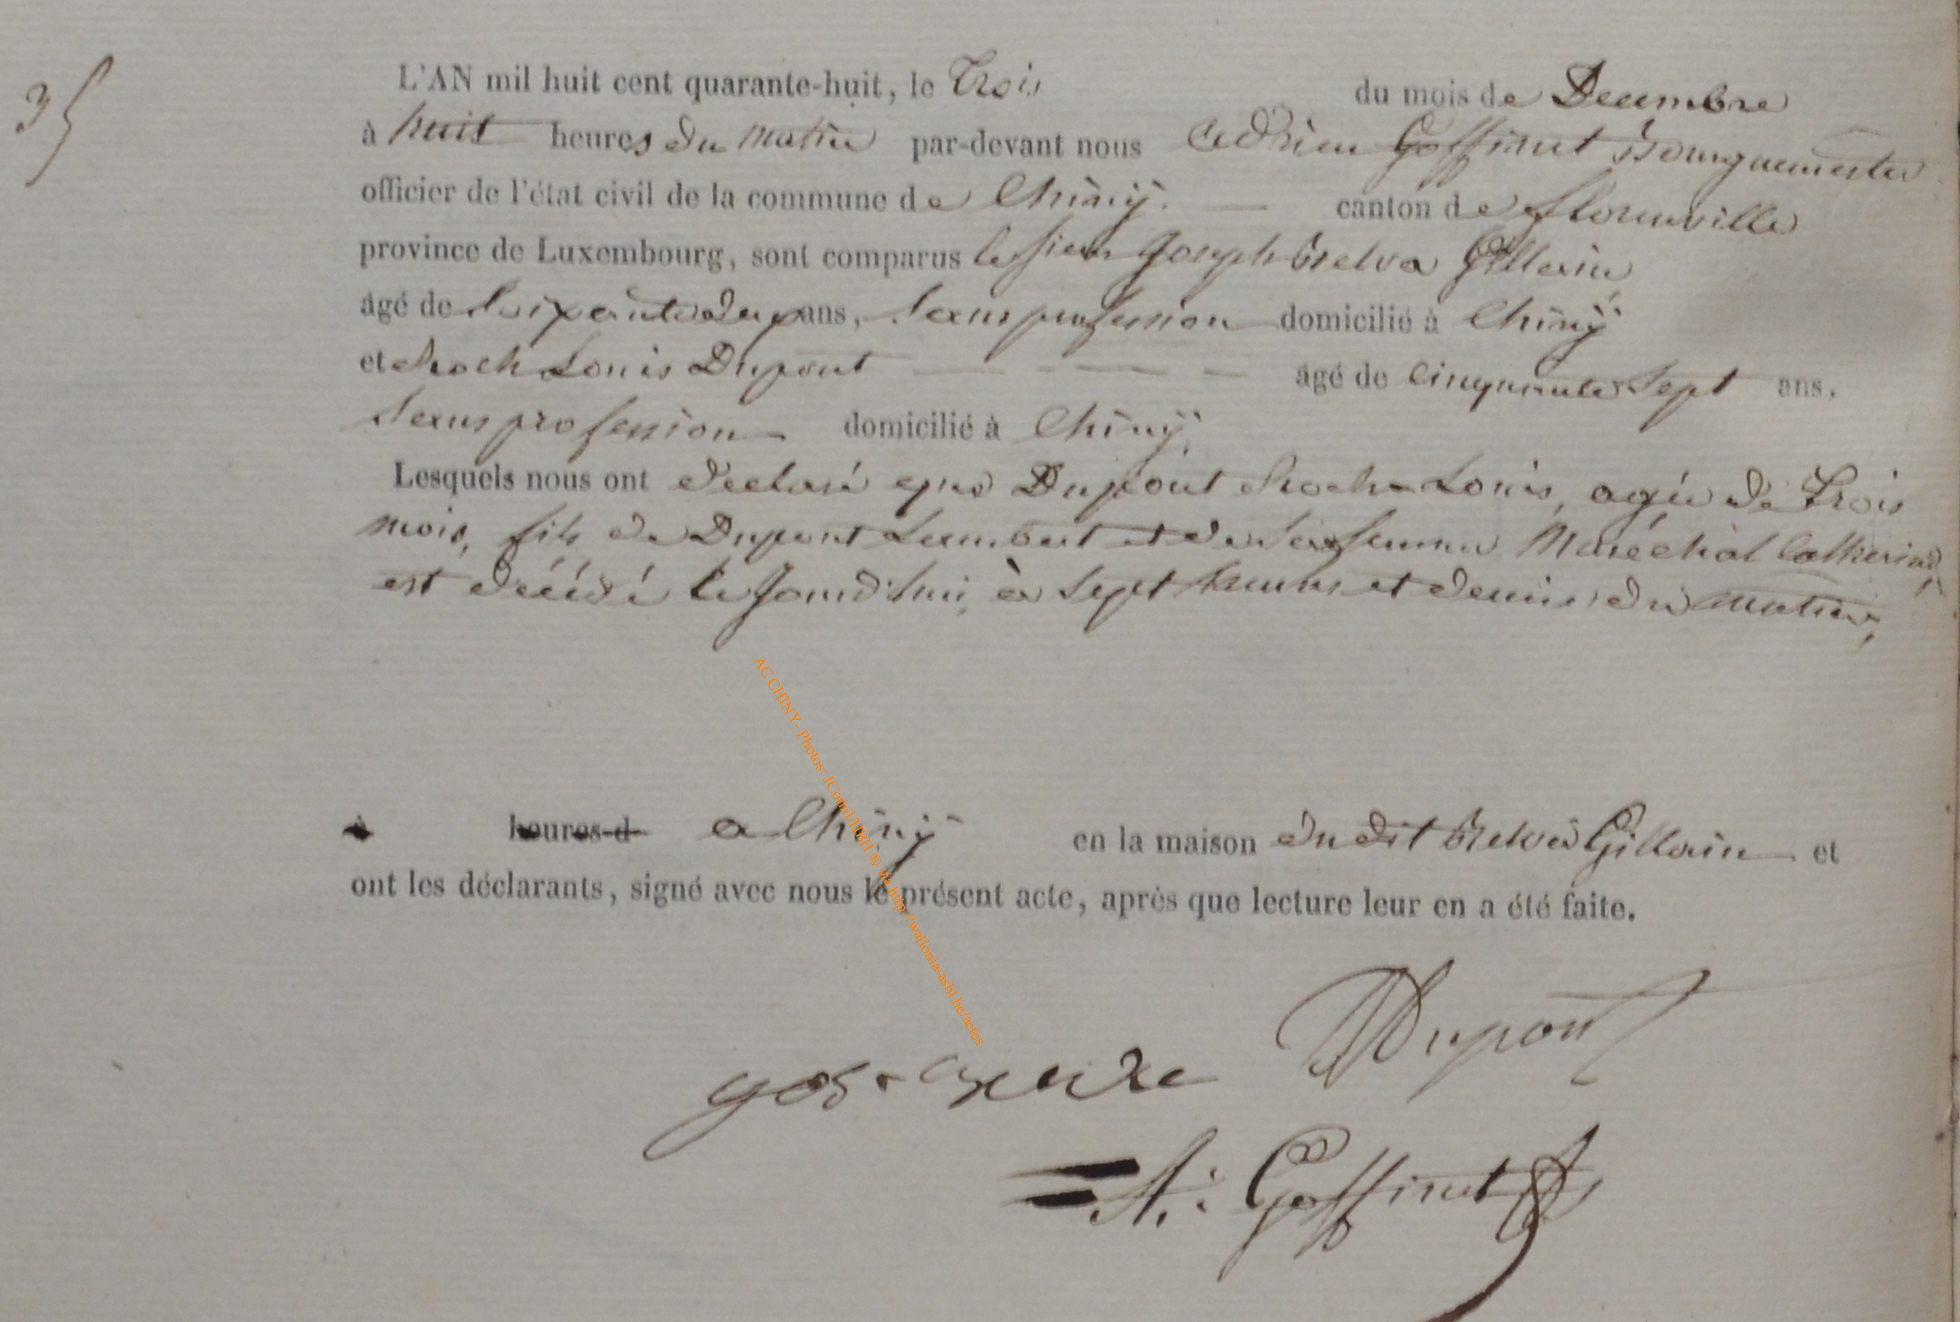 35
L'AN mil huit cent quarante-huit, le Trois du mois de Decembre
à huit heures du matin par-devant nous Adrien Goffinet Bourguemestre
officier de l'état civil de la commune de Chiny. — canton de florenville
province de Luxembourg, sont comparus le sieur Joseph Gillain
âgé de soixante deux ans, sans profession domicilié à Chiny
et Roch Louis Dupont — - — — — — âgé de cinquante sept ans.
sans profession domicilié à Chiny
Lesquels nous ont déclaré que Dupont Roch Louis, agée de Trois
mois, fils de Dupont Lambert et de sa femme Maréchal Catherine,
est décédé le jourd'hui, à sept heures et demie du matin,
à heures d a Chiny en la maison du dit Gillain et
ont les déclarants, signé avec nous le présent acte, après que lecture leur en a été faite.
Dupont
A: Goffinet
AC CHINY- Photos/ © via http://wallonia-asbl.be/actes